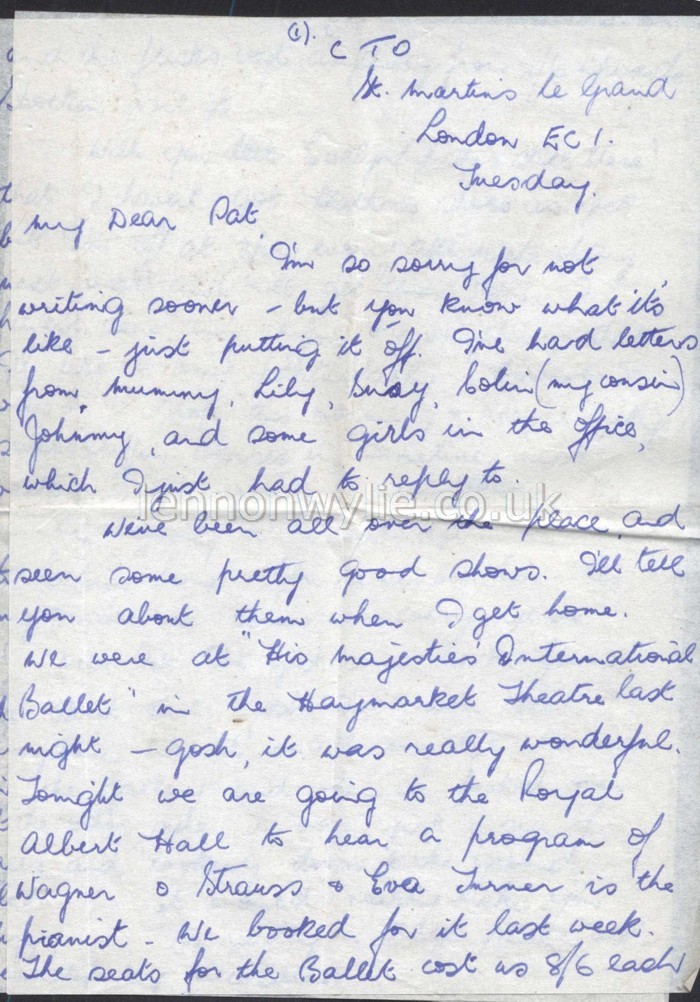 (1).
C T O
St. Martins le Grand
London EC1.
Tuesday.
My Dear Pat,
I'm so sorry for not
writing sooner - but you know what it's
like - just putting it off. I've had letters
from Mummy, Lily, Susy, Colin (my cousin)
Johnny, and some girls in the office,
which I just had to reply to.
lennonwylie.co.uk
We've been all over the place, and
seen some pretty good shows. I'll tell
you about them when I get home.
We were at "His Majesties International
Ballet" in the Haymarket Theatre last
night - gosh, it was really wonderful.
Tonight we are going to the Royal
Albert Hall to hear a program of
Wagner & Strauss & Eva Turner is the
pianist - We booked for it last week.
The seats for the Ballet cost us 8/6 each